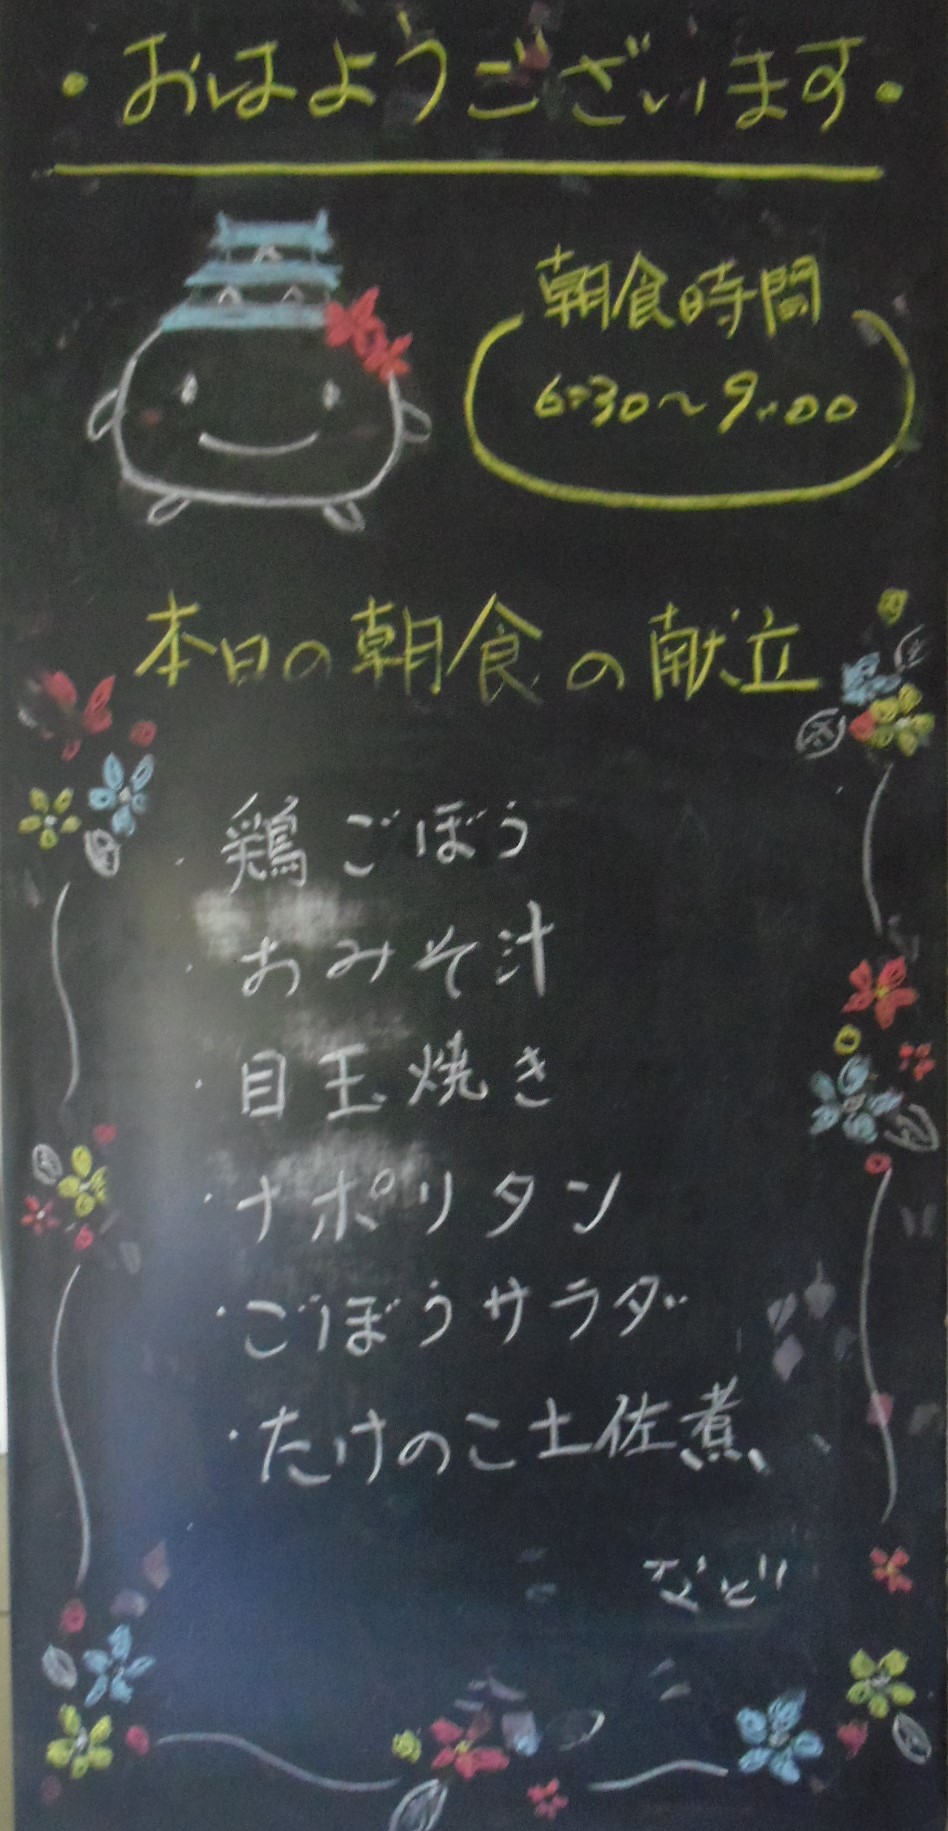 ・おはようございます・
朝食時間
6:30〜9:00
本日の朝食の献立
・鶏ごぼう
・おみそ汁
・目玉焼き
・ナポリタン
・ごぼうサラダ
・たけのこ土佐煮
など